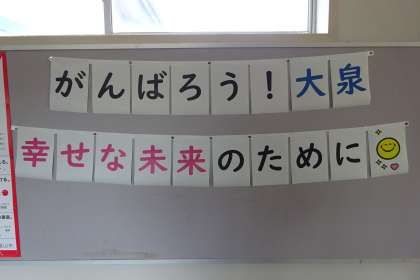 がんばろう！大泉
幸せな未来のために